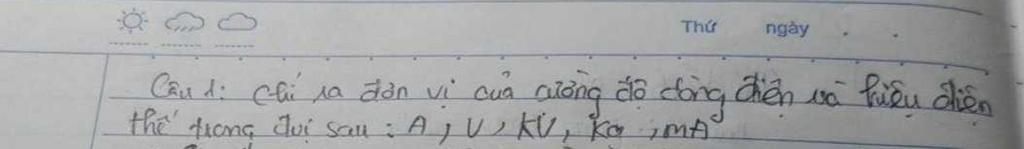 Thứ ngày
Câu 1: Chỉ ra đơn vị của cường độ dòng điện và hiệu điện
thế trong đvị sau : A, V, KV, Kg, mA